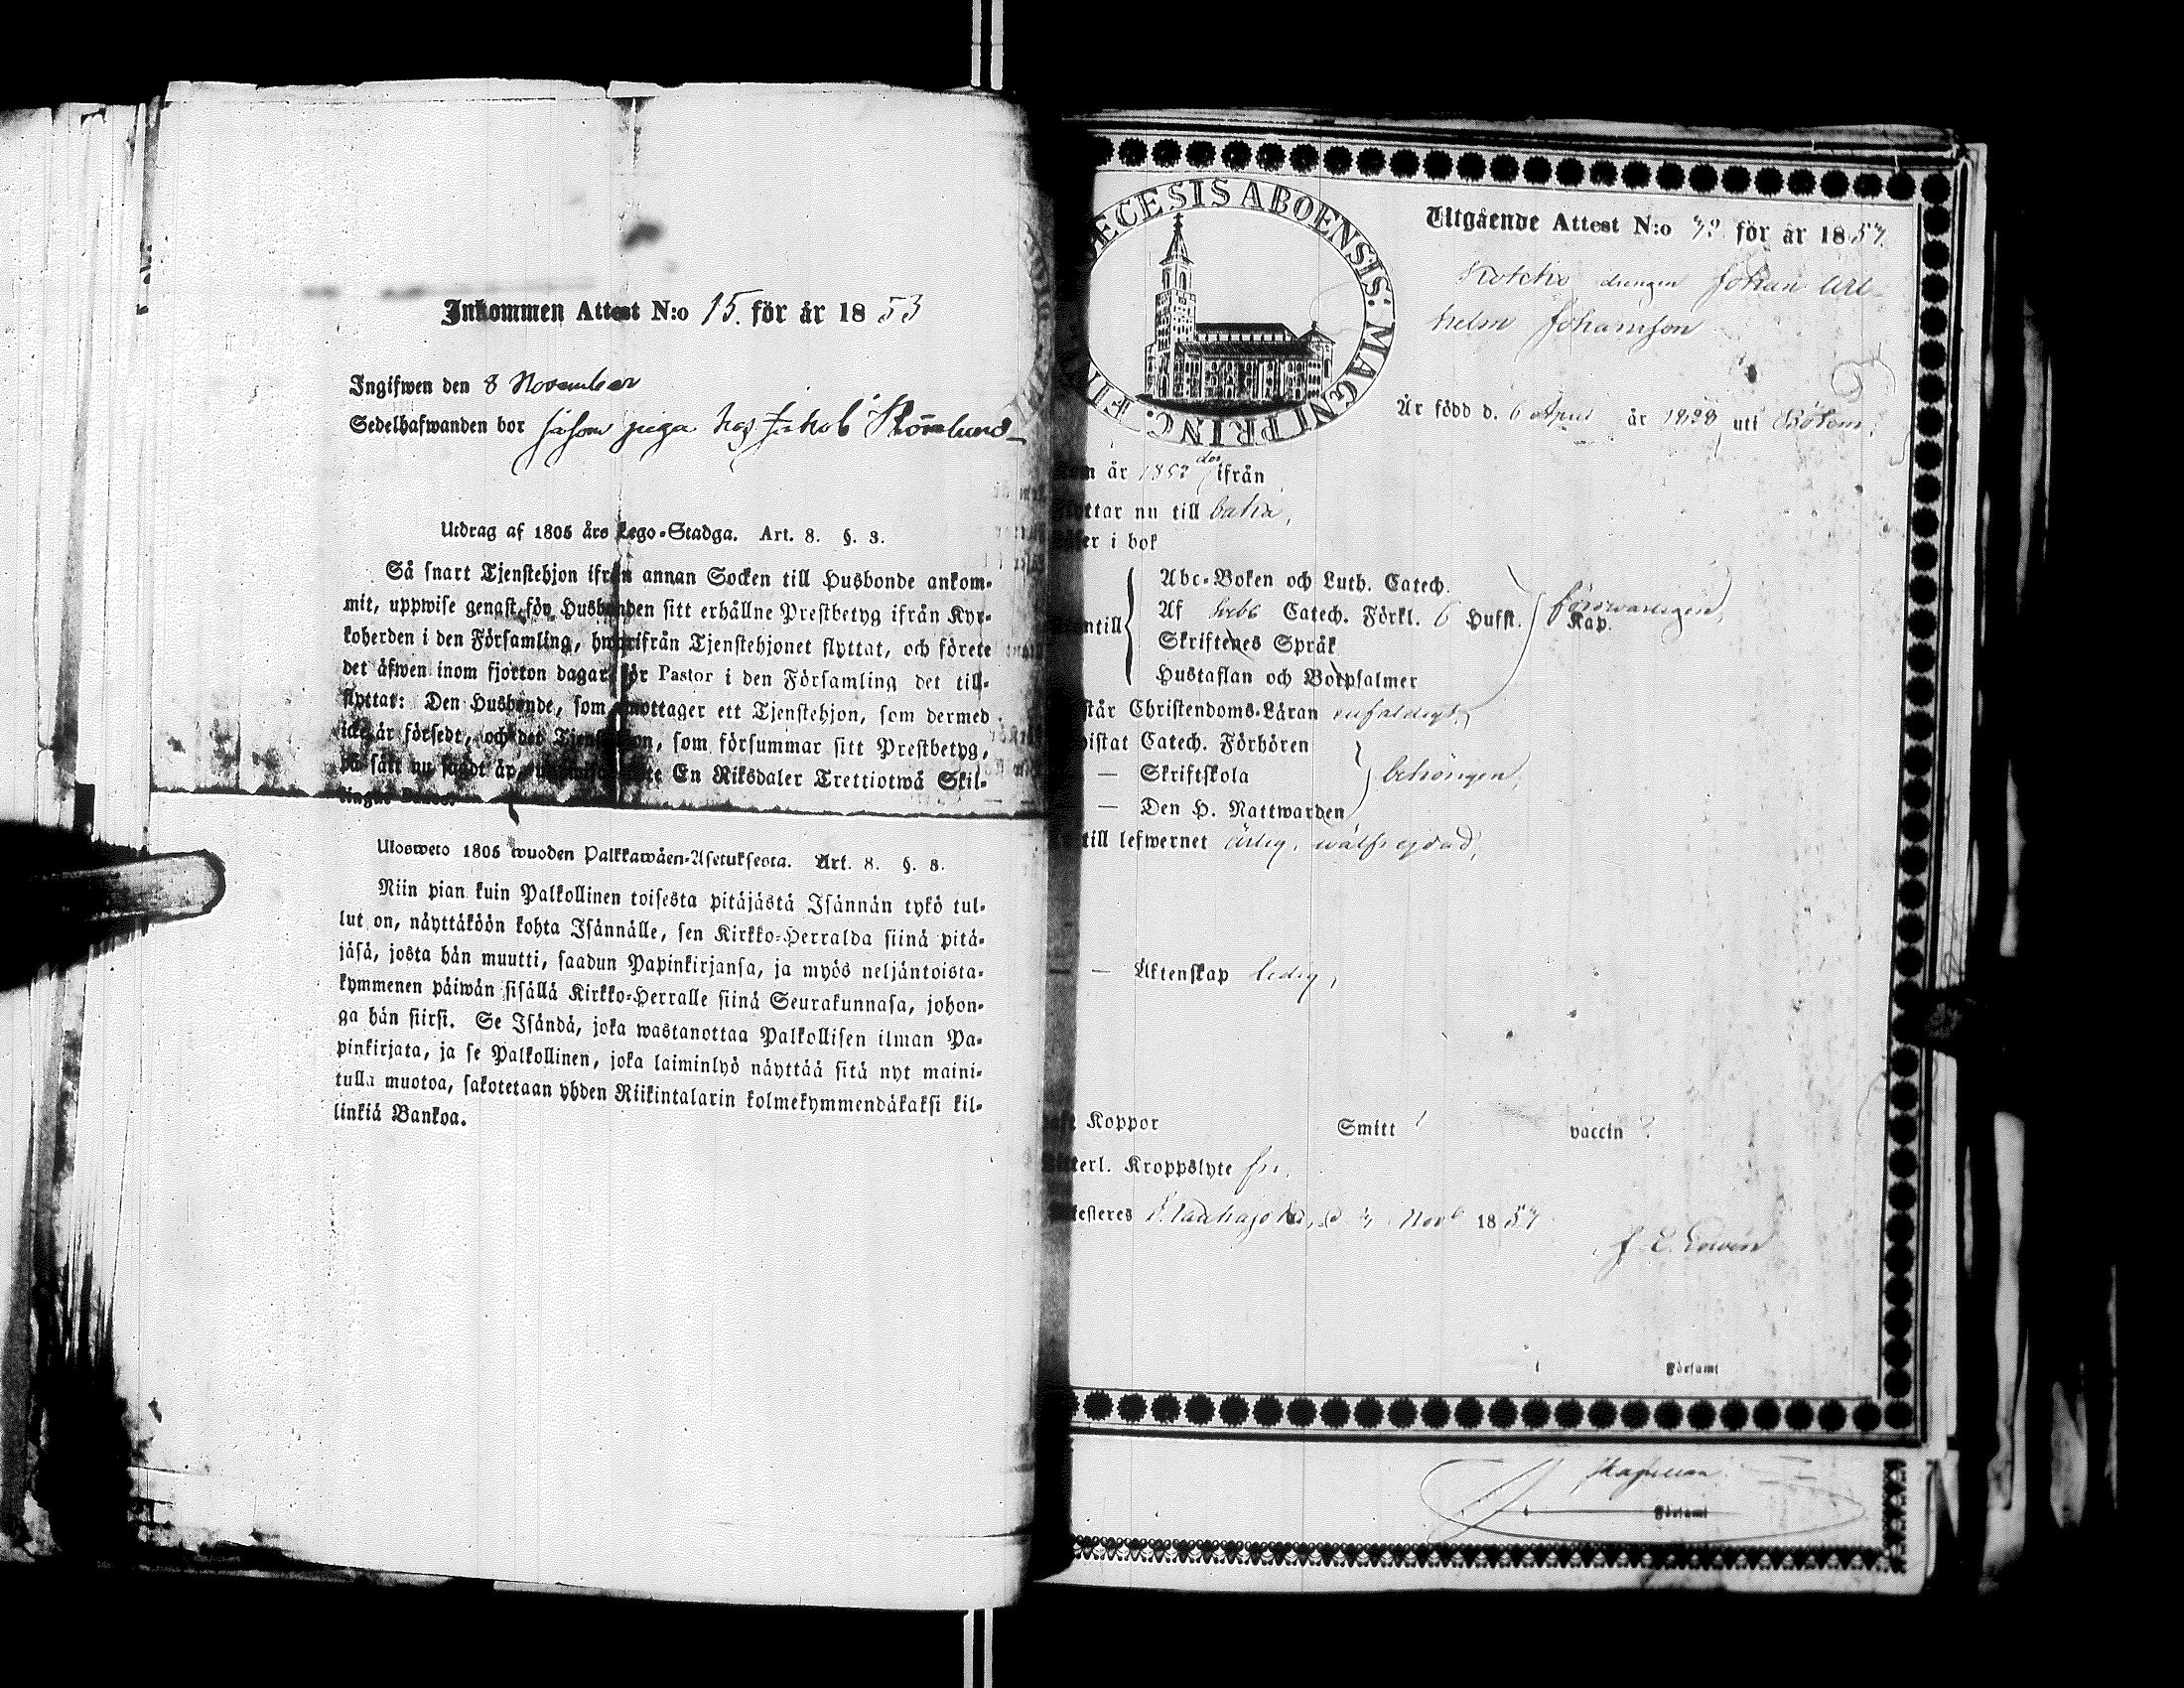 Inkommen Attest N:o 15. för år 1853
Ingifwen den 8 November
Sedelhafwanden bor såsom piga hos Jakob
Utdrag af 1805 års Lego-Stadga. Art. 8. §. 3.
Så snart Tjenstehjon ifrån annan Socken till Husbonde ankom-
mit, uppwise genast för Husbonden sitt erhållne Prestbetyg ifrån Kyr-
koherden i den Församling, hwarifrån Tjenstehjonet flyttat, och förete
det äfwen inom fjorton dagar för Pastor i den Församling det till-
flyttat: Den Husbonde, som emottager ett Tjenstehjon, som dermed
icke är försedt, och det Tjenstehjon, som försummar sitt Prestbetyg,
på sätt nu sagdt är, En Riksdaler Trettiotwå Skil-
lingar Banco.
Ulosweto 1805 wuoden Palkkawäen-Asetuksesta. Art. 8. §. 3.
Niin pian kuin Palkollinen toisesta pitäjästä Isännän tykö tul-
lut on, näyttäköön kohta Isännälle, sen Kirkko-Herralda siinä pitä-
jäsä, josta hän muutti, saadun Papinkirjansa, ja myös neljäntoista-
kymmenen päiwän sisällä Kirkko-Herralle siinä Seurakunnasa, johon-
ga hän siirsi. Se Isändä, joka wastanottaa Palkollisen ilman Pa-
pinkirjata, ja se Palkollinen, joka laiminlyö näyttää sitä nyt maini-
tulla muotoa, sakotetaan yhden Riikintalarin kolmekymmendäkaksi kil-
linkiä Bankoa.
ECESIS ABOENSIS: MAGNI PRINC. FIN
Utgående Attest N:o för år 1857.
drengen Johan Wil-
helm Johansson
Är född d. 6 April år 1838 uti
år 1857 ifrån
flyttar nu till
i bok
Abc-Boken och Luth. Catech.
Af Catech. Förkl. 6 Hufst. Kap. försvarligen,
Skriftenes Språk
Hustaflan och Botpsalmer
Christendoms-Läran enfaldigt,
Catech. Förhören
— Skriftskola behörigen,
— Den H. Nattwarden
till lefwernet ärlig, wälfrejdad,
— — Äktenskap ledig,
Koppor Smitt vaccin
Kroppslyte fri,
d. Nov 1857
Församl
Kapellan.
Församl